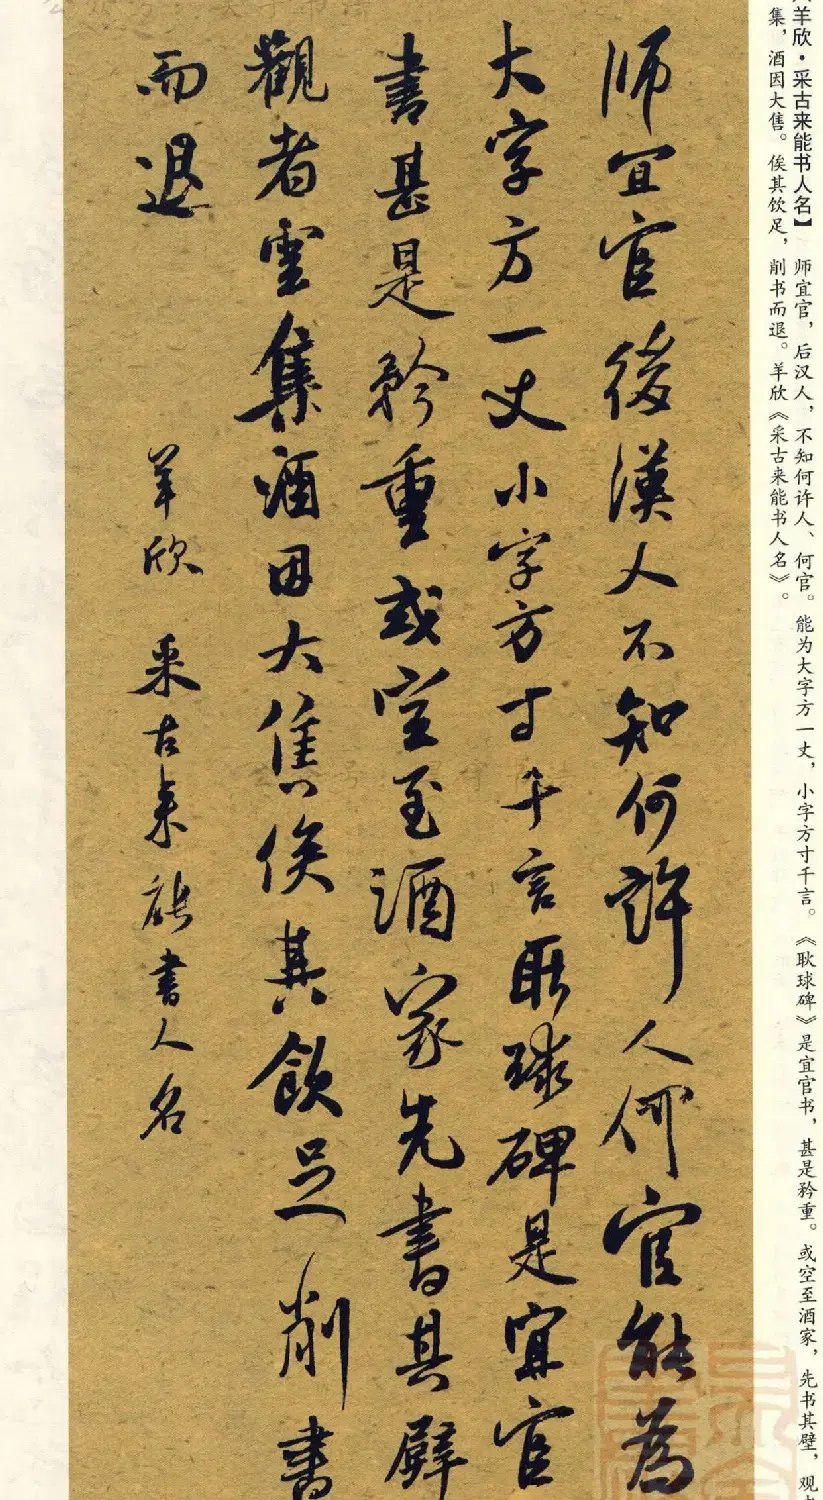 羊欣·采古来能书人名】 师宜官，后汉人，不知何许人、何官。能为大字方一丈，小字方寸千言。《耿球碑》是宜官书，甚是矜重。或空至酒家，先书其壁，观
集，酒因大售。俟其饮足，削书而退。羊欣《采古来能书人名》。
师宜官後漢人不知何許人何官能為
大字方一丈小字方寸千言耿球碑是宜官
書甚是矜重或空至酒家先書其壁
觀者雲集酒因大售俟其飲足削書
而退
羊欣 采古来能書人名